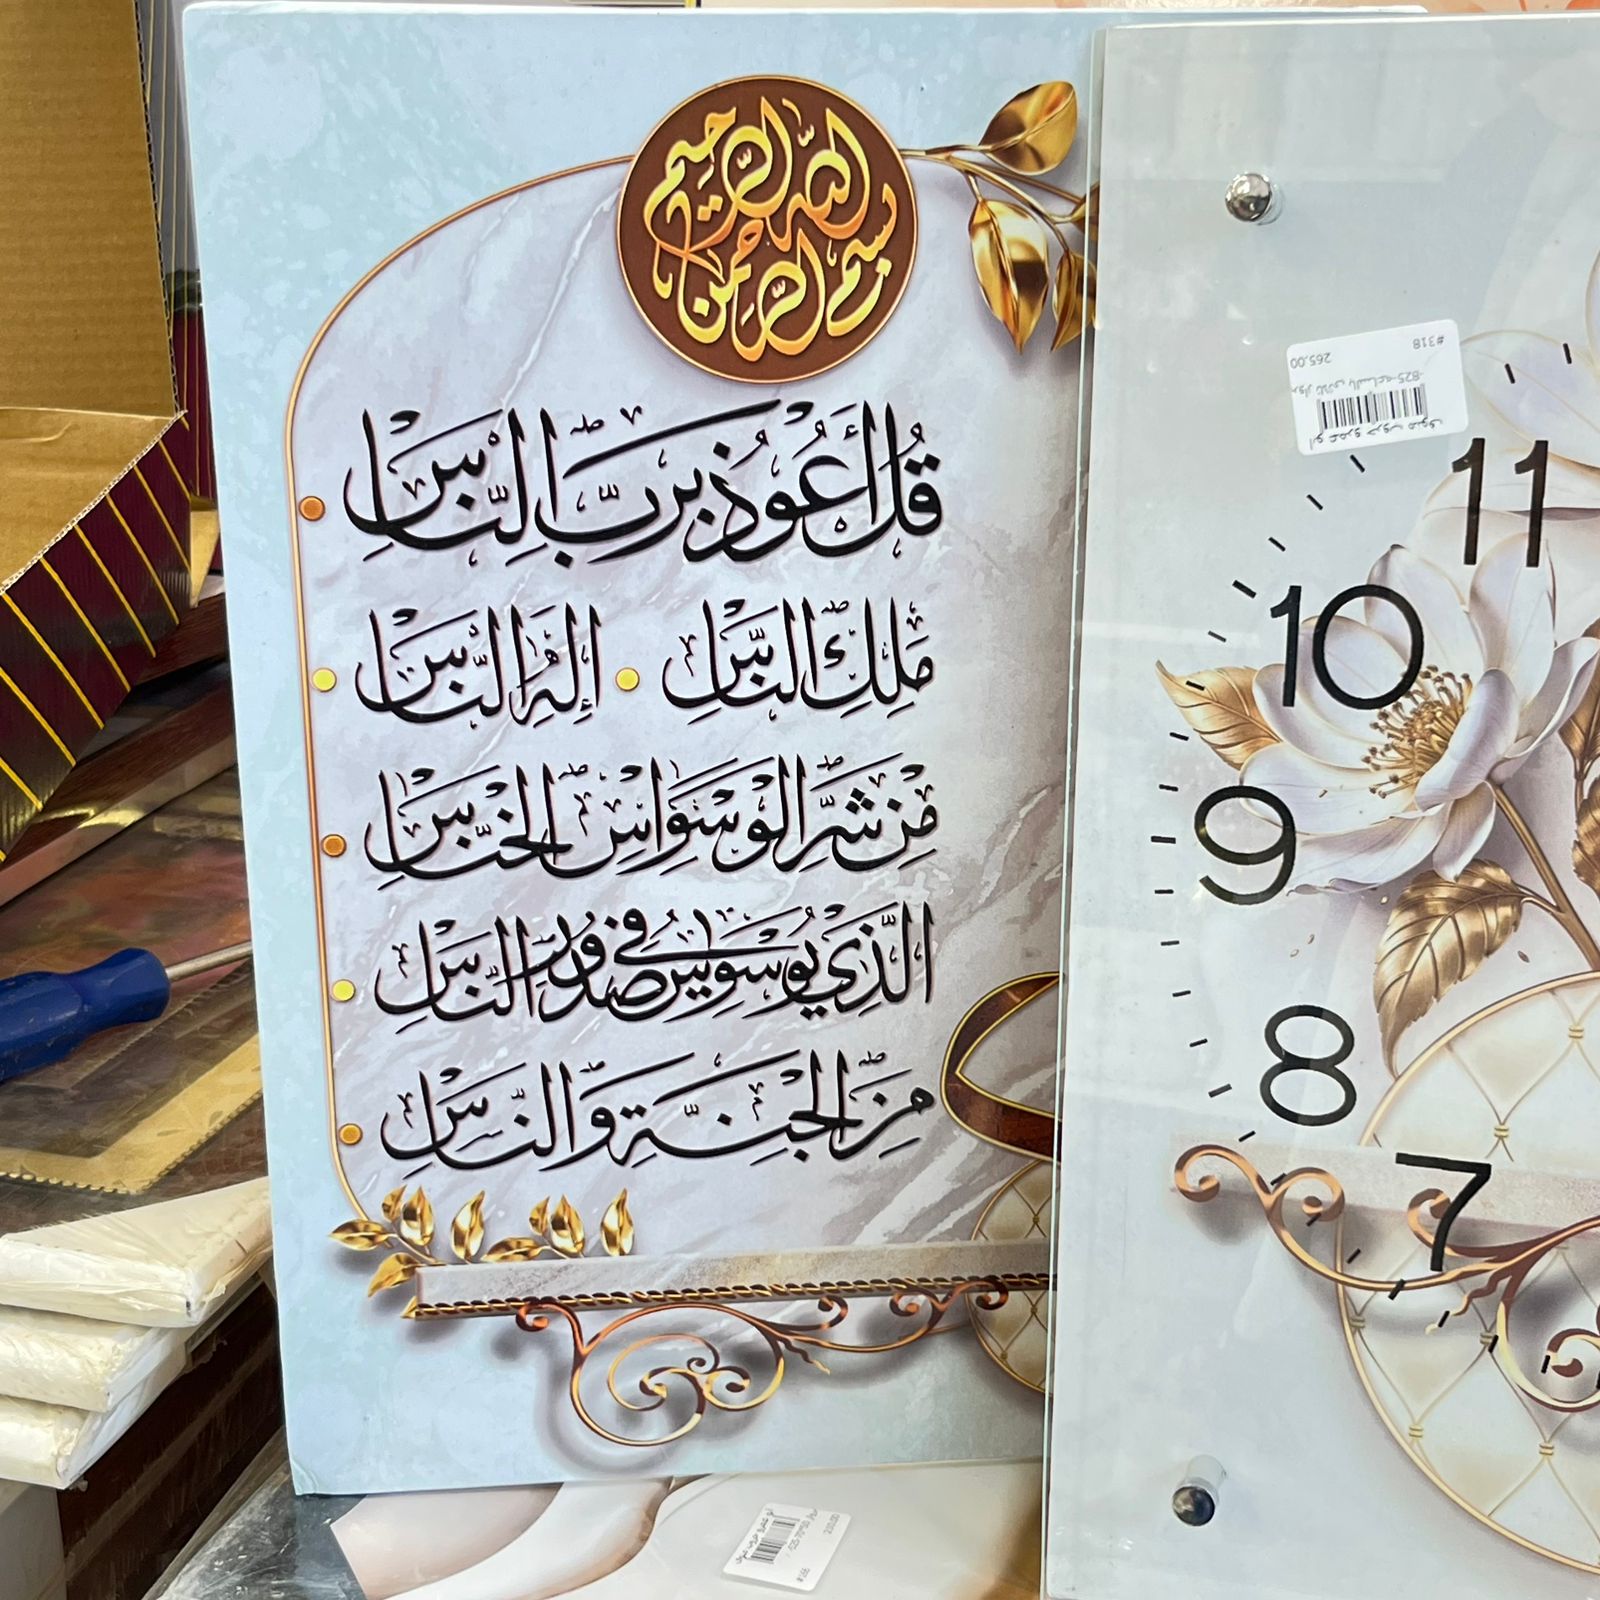 بسم الله الرحمن الرحيم
قُلْ أَعُوذُ بِرَبِّ النَّاسِ
مَلِكِ النَّاسِ إِلَٰهِ النَّاسِ
مِن شَرِّ الْوَسْوَاسِ الْخَنَّاسِ
الَّذِي يُوَسْوِسُ فِي صُدُورِ النَّاسِ
مِنَ الْجِنَّةِ وَالنَّاسِ
11
10
9
8
7
#318
265.00
#166
210.00